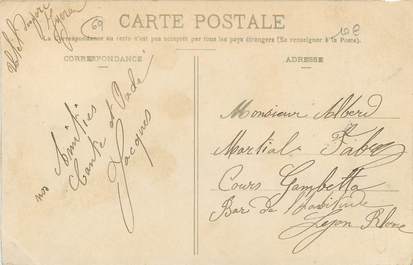 69
10€
CARTE POSTALE
La Correspondance au verso n'est pas acceptée par tous les pays étrangers (Se renseigner à la Poste).
CORRESPONDANCE
ADRESSE
Amitiés
Jacques
Monsieur Alberd
Martial Fabre
Cours Gambetta
Bar de la
Lyon Rhone